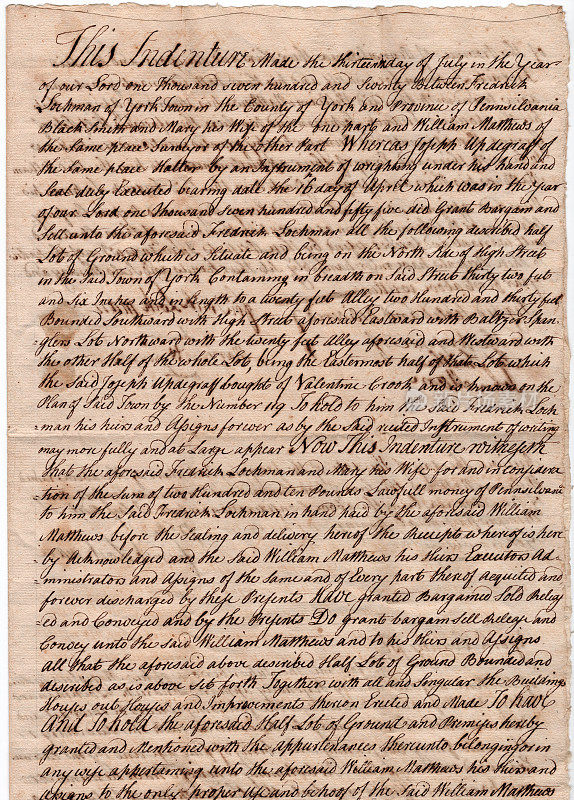 This Indenture Made the thirteen day of July in the Year
of our Lord one Thousand seven hundred and Seventy Between Fredrick
Lochman of York Town in the County of York and Province of Pennsilvania
Black Smith and Mary his Wife of the one part and William Matthews of
the Same place Surveyor of the other Part Whereas Joseph Updegraff of
the Same place Hatter by an Instrument of wrighing under his hand and
Seal duly Executed bearing date the 16 day of Aprel which was in the Year
of our Lord one thousand seven hundred and fifty five did Grant Bargain and
Sell unto the aforesaid Fredrick Lochman all the following described half
Lot of Ground which is Situate and being on the North Side of High Street
in the Said Town of York Containing in breadth on Said Street thirty two feet
and Six Inches and in length to a twenty feet Alley two Hundred and thirty feet
Bounded Southward with High Street aforesaid Eastward with Baltzer Span-
glers Lot Northward with the twenty feet Alley aforesaid and Westward with
the other Half of the whole Lot, being the Eastermost half of that Lot which
the Said Joseph Updegraff bought of Valentine Crook and is known on the
Plan of Said Town by the Number 119 To hold to him the Said Fredrick Loch-
man his heirs and Assigns forever as by the Said recited Instrument of writing
may more fully and at Large appear Now This Indenture witnesseth
that the aforesaid Fredrick Lochman and Mary his Wife for and in Considera
-tion of the Sum of two Hundred and ten Pounds Lawfull money of Pennsilvani
to him the Said Fredrick Lochman in hand paid by the aforesaid William
Matthews before the Sealing and delivery hereof the Receipt whereof is here
by Acknowledged and the Said William Matthews his Heirs Executors Ad-
-ministrators and Assigns of the Same and of Every part thereof Acquited and
forever discharged by these Presents Have granted Bargained Sold Releas
-ed and Conveyed and by the Presents Do grant bargain Sell Release and
Convey unto the Said William Matthews and to his Heirs and Assigns
all that the aforesaid above described Half Lot of Ground Bounded and
described as is above Set forth Together with all and Singular the Buildings
Houses out Houses and Improvements thereon Erected and Made To have
And To hold the aforesaid Half Lot of Ground and Premises hereby
granted and Mentioned with the appurtenances thereunto belonging or in
any wise appertaining unto the aforesaid William Matthews his Heirs and
assigns to the only proper use and behoof of the Said William Matthews